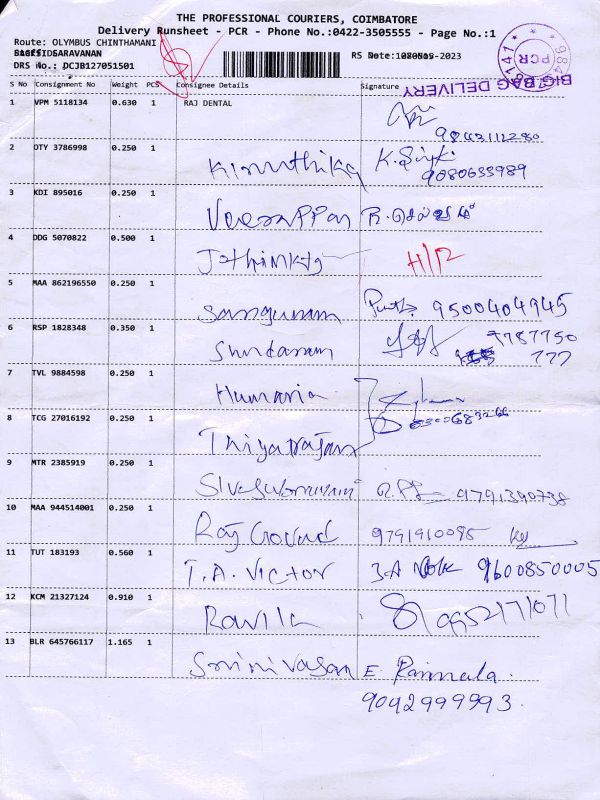 THE PROFESSIONAL COURIERS, COIMBATORE
Delivery Runsheet - PCR - Phone No.:0422-3505555 - Page No.:1
Route: OLYMBUS CHINTHAMANI
DRS No.: DCJB127051501
BIG BAG DELIVERY
PCR
S No Consignment No Weight PCS Consignee Details Signature
1 VPM 5118134 0.630 1 RAJ DENTAL
2 OTY 3786998 0.250 1 Kiruthika 9080633989
3 KDI 895016 0.250 1 Veerappan
4 DDG 5070822 0.500 1 H/R
5 MAA 862196550 0.250 1 Sangunam 9500404945
6 RSP 1828348 0.350 1 Sundaram 9787750
777
7 TVL 9884598 0.250 1 Humaria
8 TCG 27016192 0.250 1 Thiyatrajan
9 MTR 2385919 0.250 1 9791390738
10 MAA 944514001 0.250 1 Raj Govind 9791910095
11 TUT 183193 0.560 1 T.A. Victor 9600850005
12 KCM 21327124 0.910 1 9952171071
13 BLR 645766117 1.165 1 Srinivasan E. Parimala
9042999993.